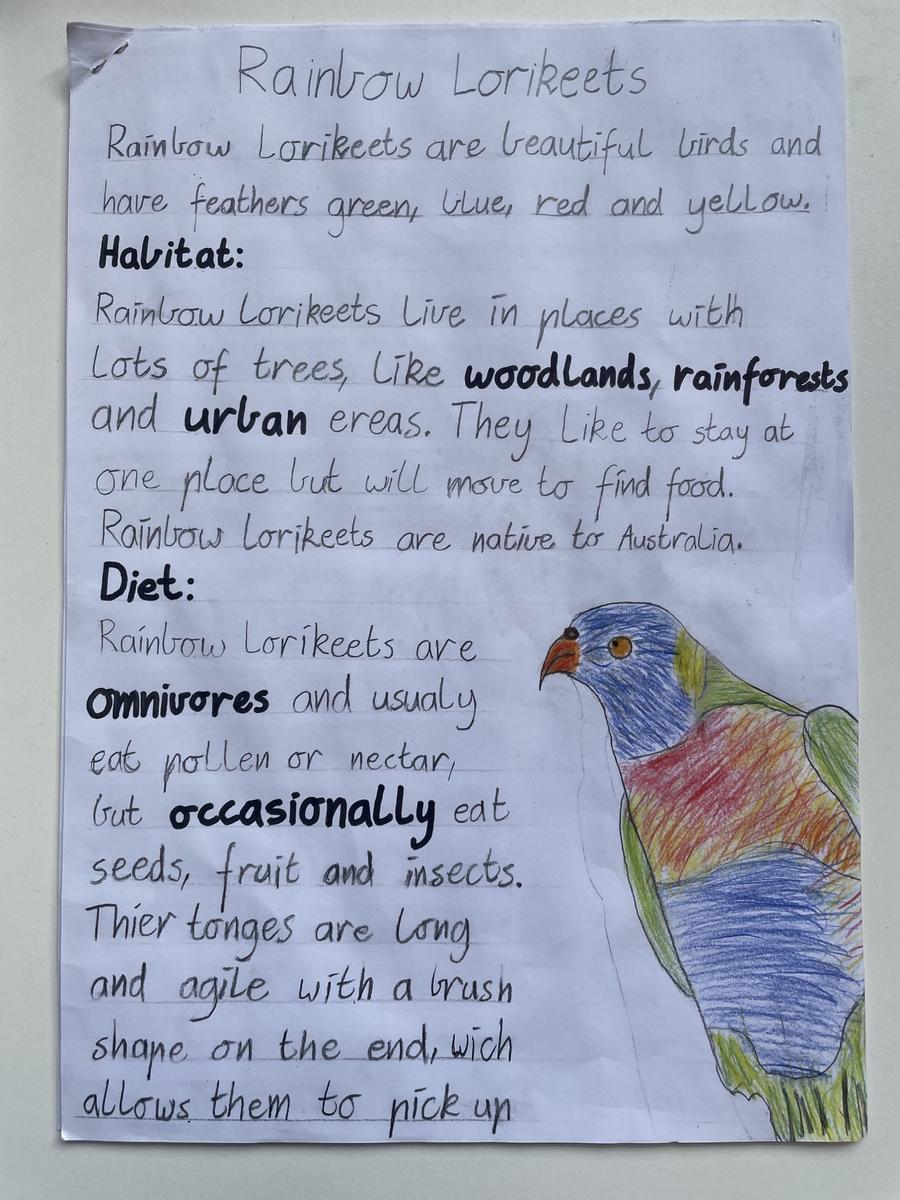 Rainbow Lorikeets
Rainbow Lorikeets are beautiful birds and
have feathers green, blue, red and yellow.
Habitat:
Rainbow Lorikeets live in places with
lots of trees, like woodlands, rainforests
and urban ereas. They like to stay at
one place but will move to find food.
Rainbow Lorikeets are native to Australia.
Diet:
Rainbow Lorikeets are
omnivores and usualy
eat pollen or nectar,
but occasionally eat
seeds, fruit and insects.
Thier tonges are long
and agile with a brush
shape on the end, wich
allows them to pick up